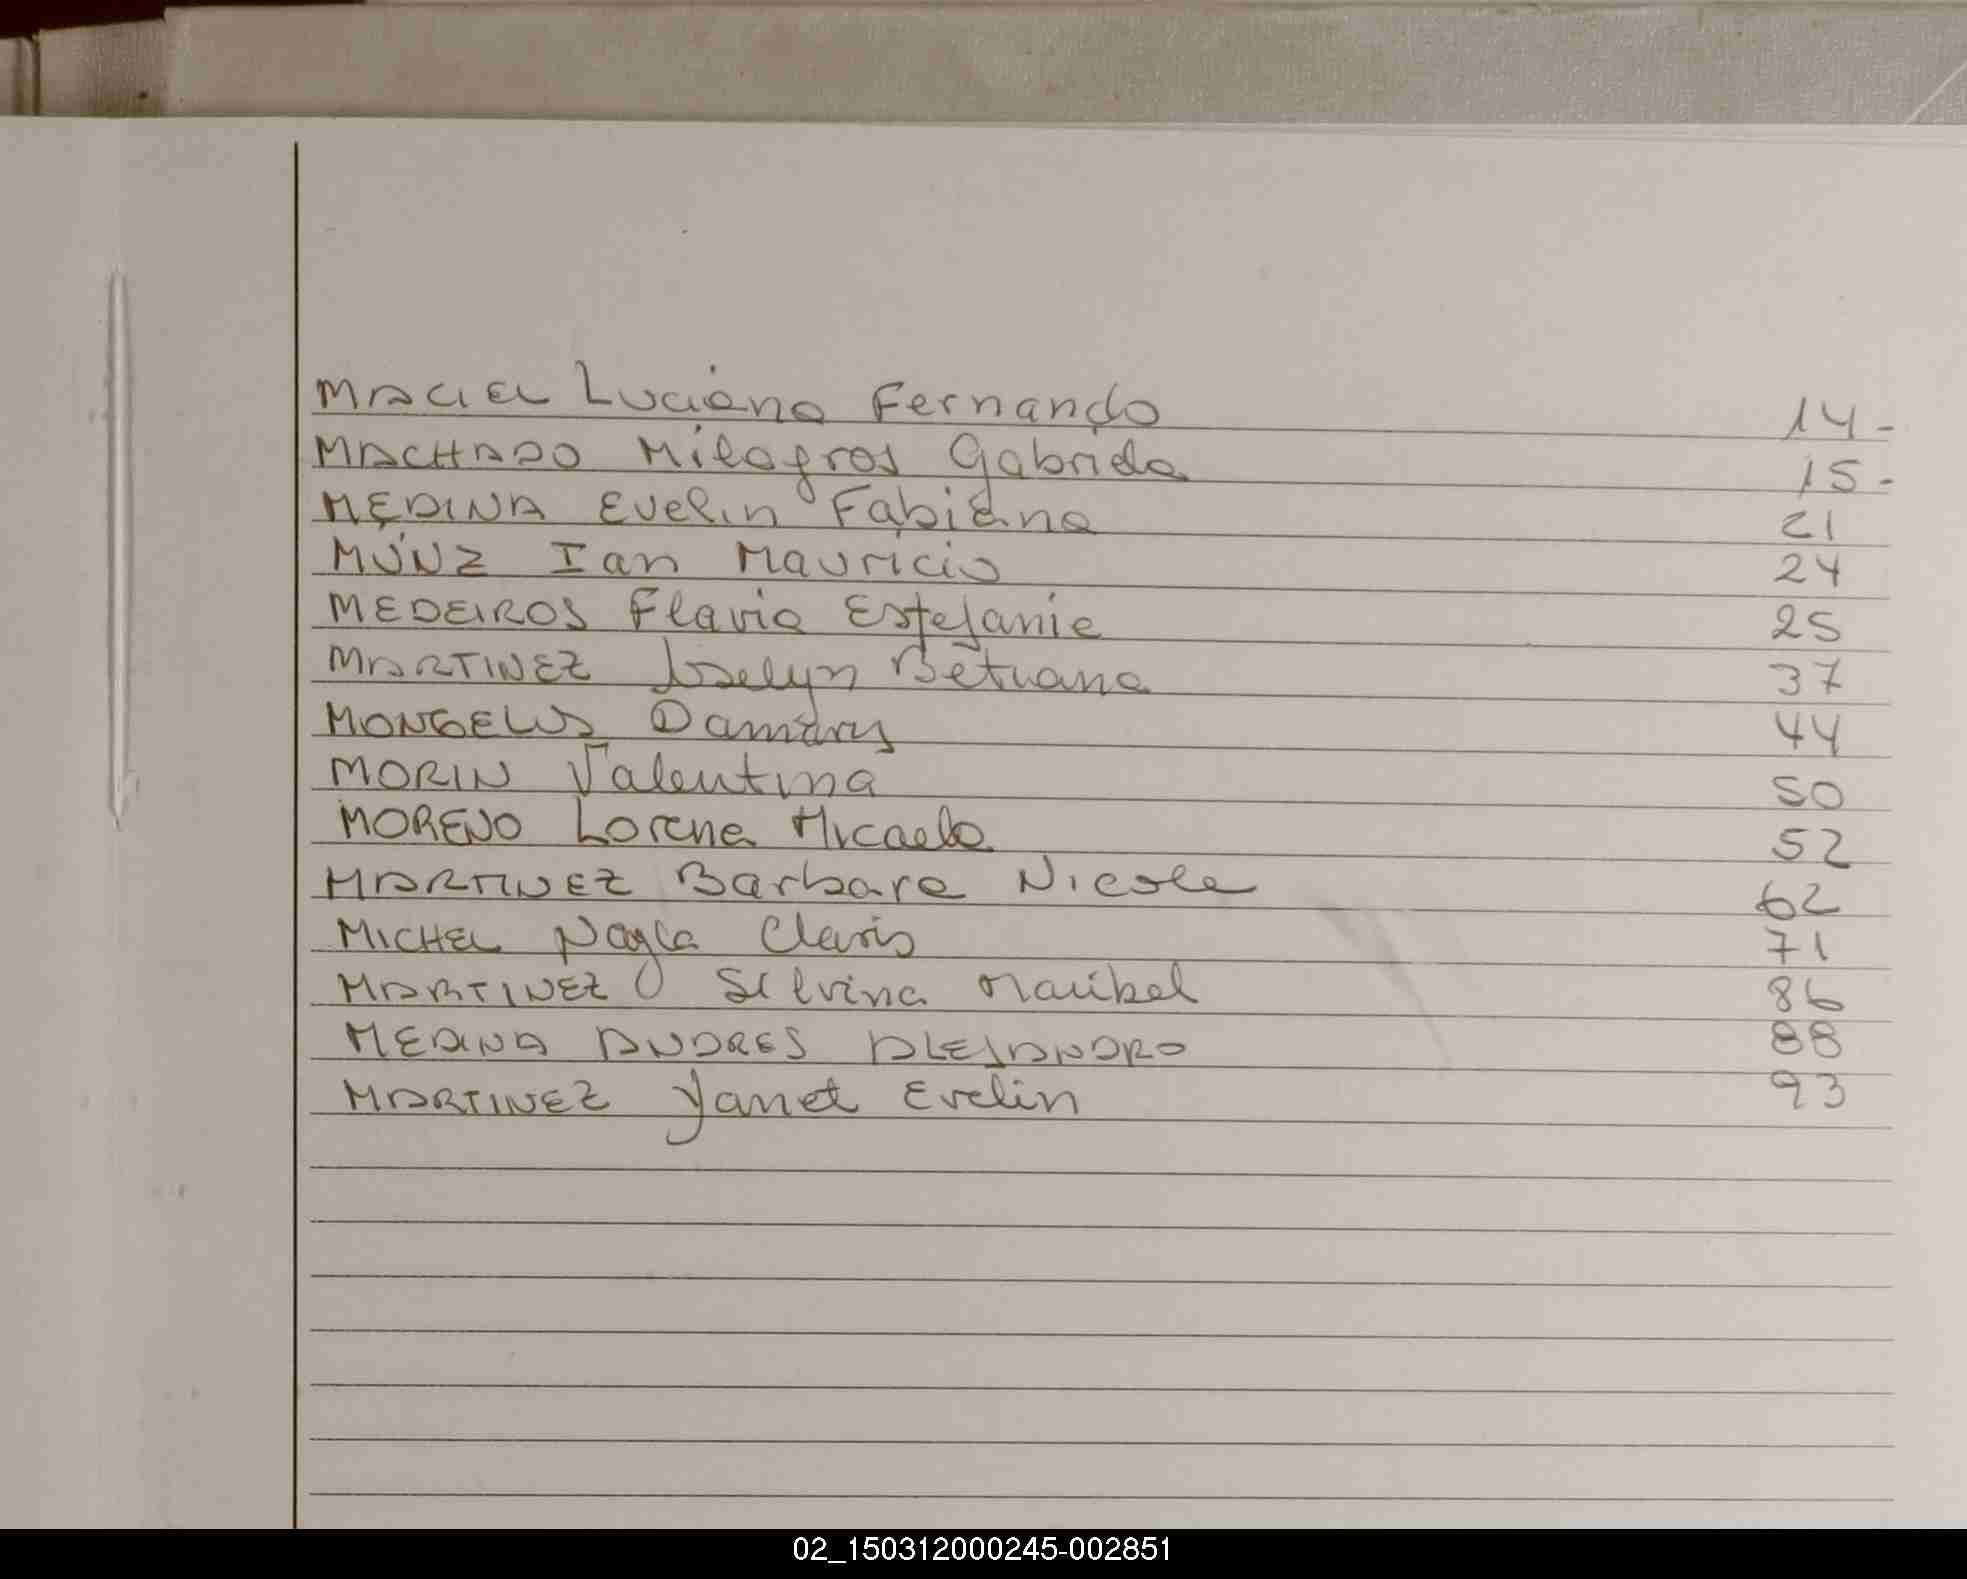 MACIEL Luciano Fernando 14-
MACHADO Milagros Gabriela 15-
MEDINA Evelin Fabiana 21
MÚNZ Ian Mauricio 24
MEDEIROS Flavia Estefanie 25
MARTINEZ Joselyn Betuana 37
MONGELOS Damarys 44
MORIN Valentina 50
MORENO Lorena Micaela 52
MARTINEZ Barbara Nicole 62
MICHEL Nayla Claris 71
MARTINEZ Silvina Maribel 86
MEDINA ANDRES ALEJANDRO 88
MARTINEZ Yanet Evelin 93
02_150312000245-002851